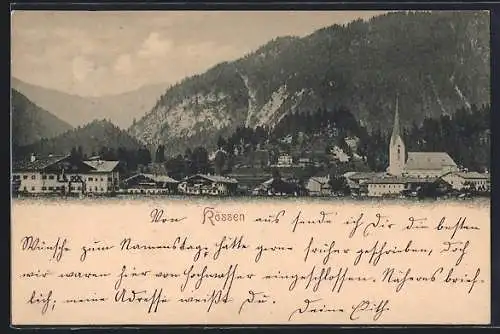 Von Kössen aus sende ich Dir die besten
Wünsche zum Namenstag, hätte gerne früher geschrieben, doch
wir waren hier von Hochwasser eingeschlossen. Näheres brief-
lich, meine Adresse weißt du. Deine Edith.